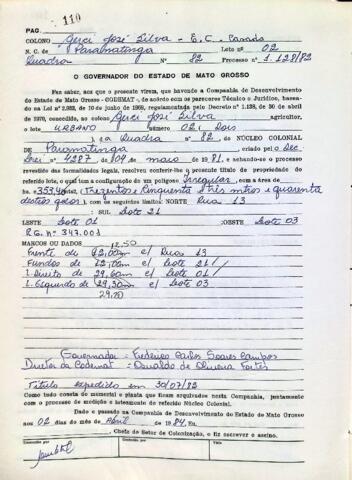 PAG. 110
COLONO Gerci José Silva - E.C. Casado
N. C. de Paranatinga Lote nº 02
Quadra Nº 82 Processo nº 1.128/82
O GOVERNADOR DO ESTADO DE MATO GROSSO
Faz saber, aos que o presente virem, que havendo a Companhia de Desenvolvimento
do Estado de Mato Grosso - CODEMAT -, de acôrdo com os pareceres Técnico e Jurídico, basea-
da na Lei nº 2.883, de 10 de junho de 1968, regulamentada pelo Decreto nº 1.138, de 30 de abril
de 1970, concedido, ao colono Gerci José Silva agricultor,
o lote URBANO número 02 (Dois
) e a Quadra nº 82, DO NÚCLEO COLONIAL
DE Paranatinga criado pelo Dec.
Lei nº 4287 de 04 de maio de 1981, e achando-se o processo
revestido das formalidades legais, resolveu conferir-lhe o presente título de propriedade do
referido lote, o qual tem a configuração de um polígono Irregular, com a área de
ha. 353,40m² (Trezentos e Cinquenta e três mtros e quarenta
), com os seguintes limites: NORTE Rua 13
: SUL Lote 21
LESTE Lote 01 :OESTE Lote 03
R.G. nº 347.001
MARCOS OU DADOS 12,50
Frente de 12,00m c/ Rua 13
Fundos de 12,00m c/ Lote 21
L. Direito de 29,60m c/ Lote 01
L. Esquerdo de 29,30m c/ Lote 03
29,70
Governador - Frederico Carlos Soares Campos
Diretor da Codemat - Osvaldo de Oliveira Fortes
Título expedido em 30/07/82
Como tudo consta do memorial e planta que ficam arquivados nesta Companhia, juntamente
com o processo de medição e loteamento do referido Núcleo Colonial.
Dado e passado na Companhia de Desenvolvimento do Estado de Mato Grosso
aos 02 dias do mês de Abril de 1984. Eu,
, Chefe do Setor de Colonização, o fiz escrever e assino.